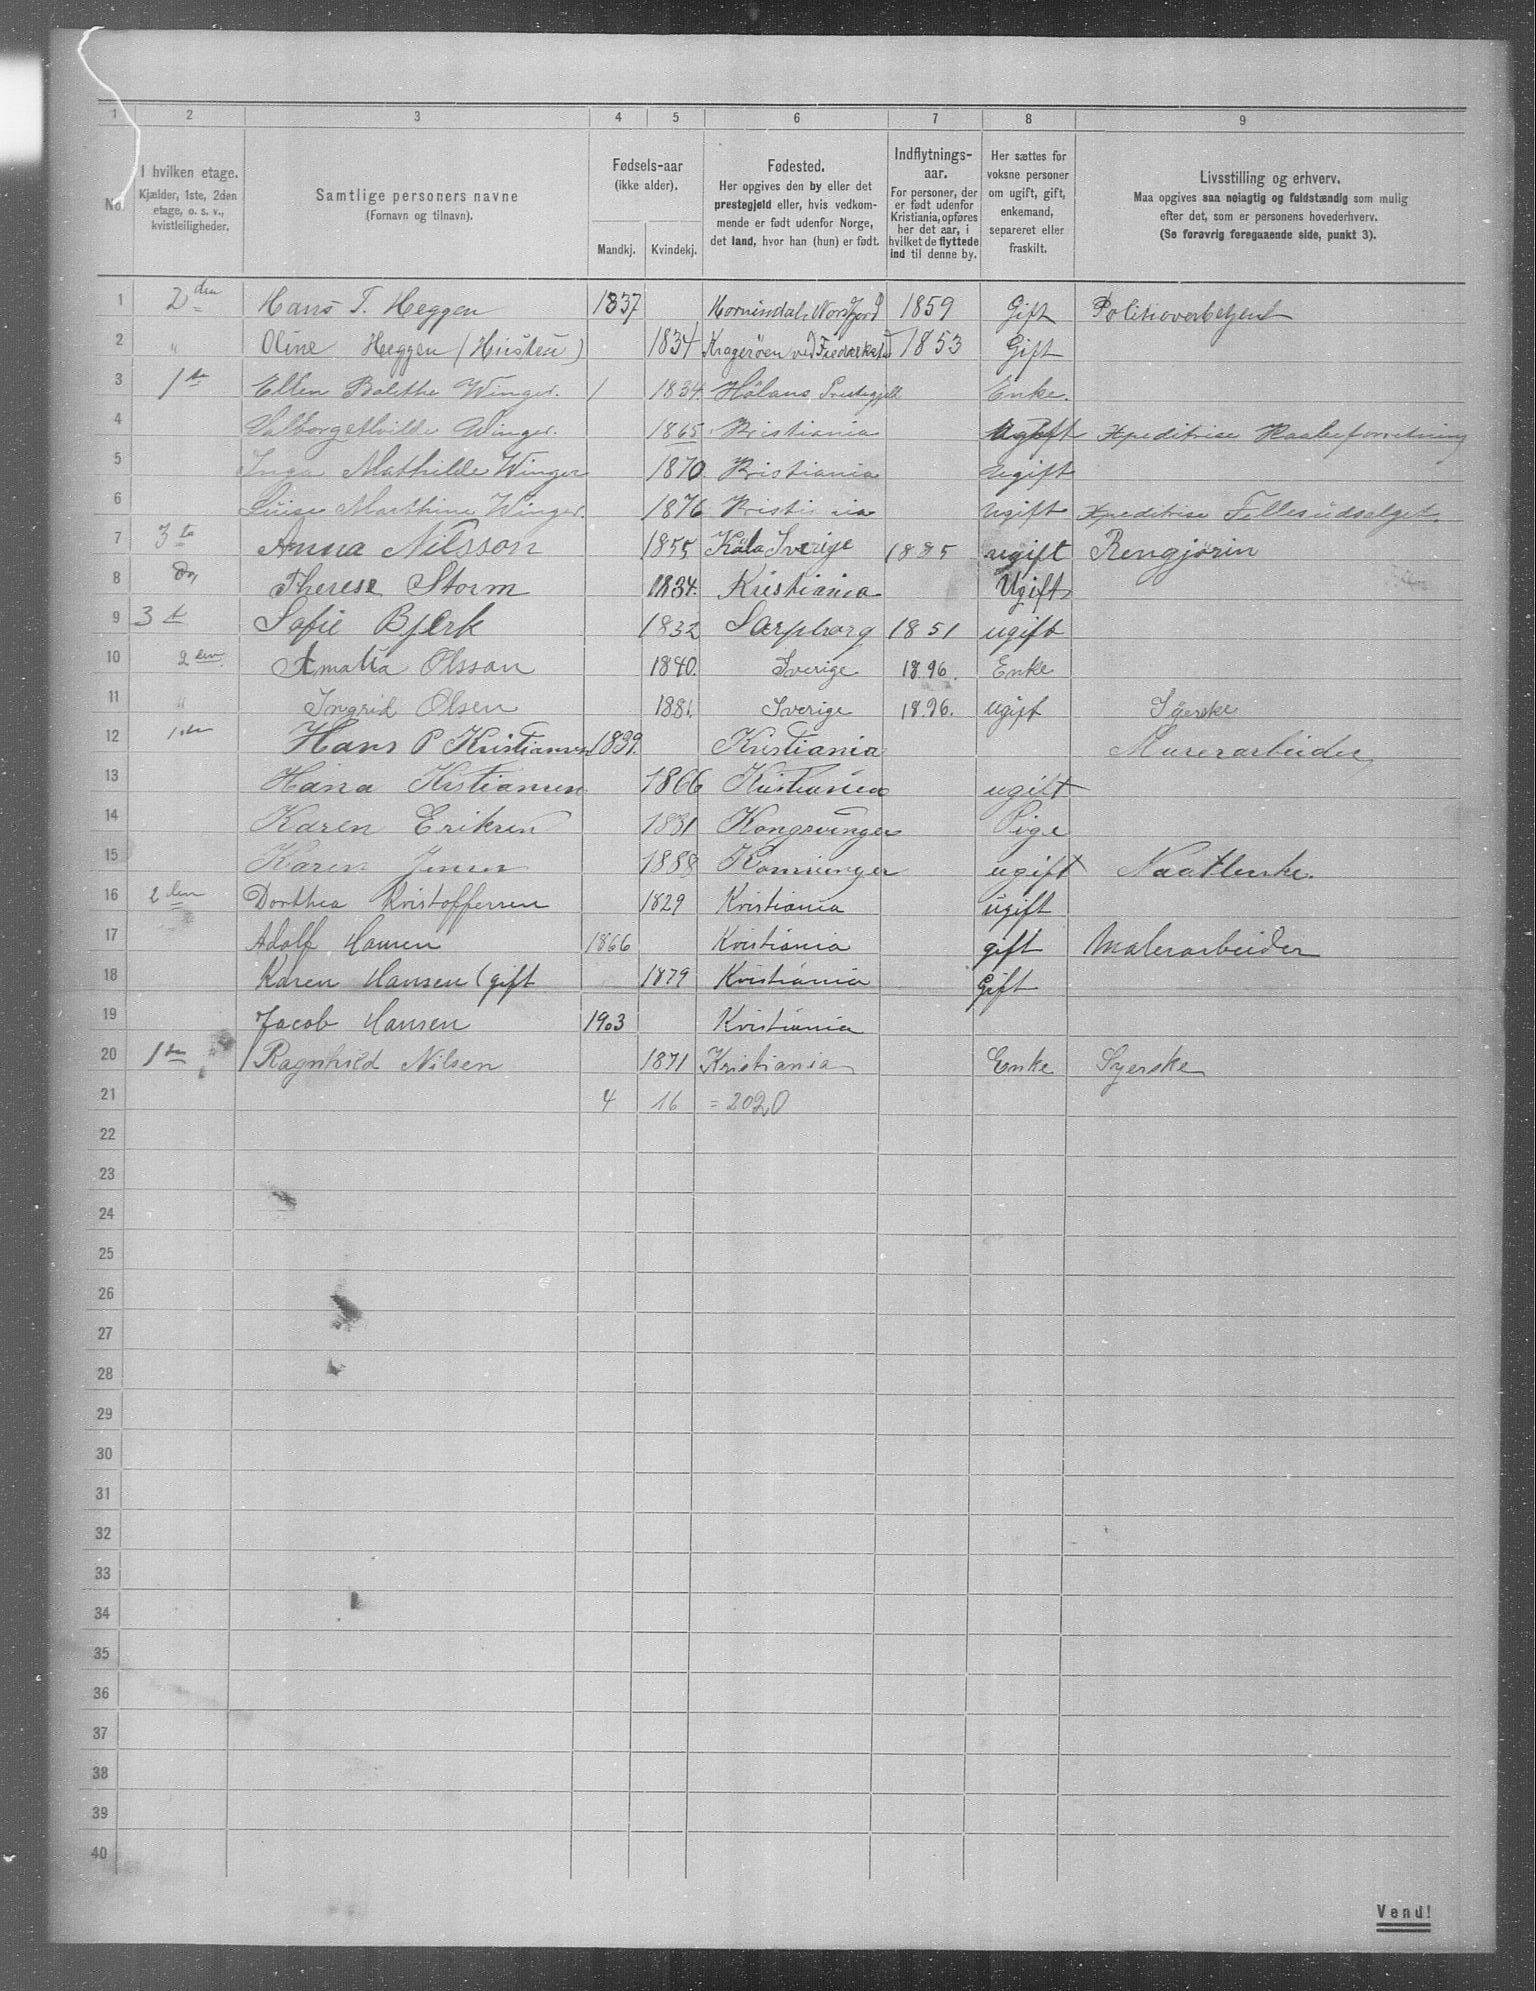 1 2 3 4 5 6 7 8 9
No. I hvilken etage. Kjælder, 1ste, 2den etage, o. s. v., kvistleiligheder. Samtlige personers navne (Fornavn og tilnavn). Fødsels-aar (ikke alder). Mandkj. Kvindekj. Fødested. Her opgives den by eller det prestegjeld eller, hvis vedkommende er født udenfor Norge, det land, hvor han (hun) er født. Indflytningsaar. For personer, der er født udenfor Kristiania, opføres her det aar, i hvilket de flyttede ind til denne by. Her sættes for voksne personer om ugift, gift, enkemand, separeret eller fraskilt. Livsstilling og erhverv. Maa opgives saa nøiagtig og fuldstændig som mulig efter det, som er personens hovederhverv. (Se forøvrig foregaaende side, punkt 3).
1 2den Hans T. Heggen 1837 Hornindal, Nordfjord 1859 Gift Politioverbetjent
2 " Oline Heggen 1834 Kragerøen ved Fredrikstad 1853 Gift
3 1ste Ellen Bolethe Winger. 1 1834. Hölans Prestegjeld Enke.
4 Valborg Winger. 1865 Kristiania Ugift
5 Inga Mathilde Winger 1870. Kristiania Ugift
6 Luise Marthine Winger. 1876 Kristiania Ugift
7 3te Anna Nilsson 1855 Köla Sverige 1885 ugift Rengjörin
8 Do, Therese Storm 1834. Kristiania Ugift
9 3te Sofie Bjerk 1832 Sarpborg 1851 ugift
10 2den Amalia Olsson 1840. Sverige 1896. Enke
11 " Ingrid Olsen 1881. Sverige 1896. ugift Syerske
12 1ste Hans P Kristiansen 1839. Kristiania Murerarbeider
13 Hana Kristiansen 1866 Kristiania ugift
14 Karen Eriksen 1881 Kongsvinger Pige
15 Karen Jensen 1888 ugift
16 2den Dorthea Kristoffersen 1829 Kristiania ugift
17 Adolf Hansen 1866 Kristiania gift Malerarbeider
18 Karen Hansen (gift 1879 Kristiania Gift
19 Jacob Hansen 1903 Kristiania
20 1ste Ragnhild Nilsen 1871 Kristiania Enke Syerske
21 4 16 = 20
22
23
24
25
26
27
28
29
30
31
32
33
34
35
36
37
38
39
40
Vend!